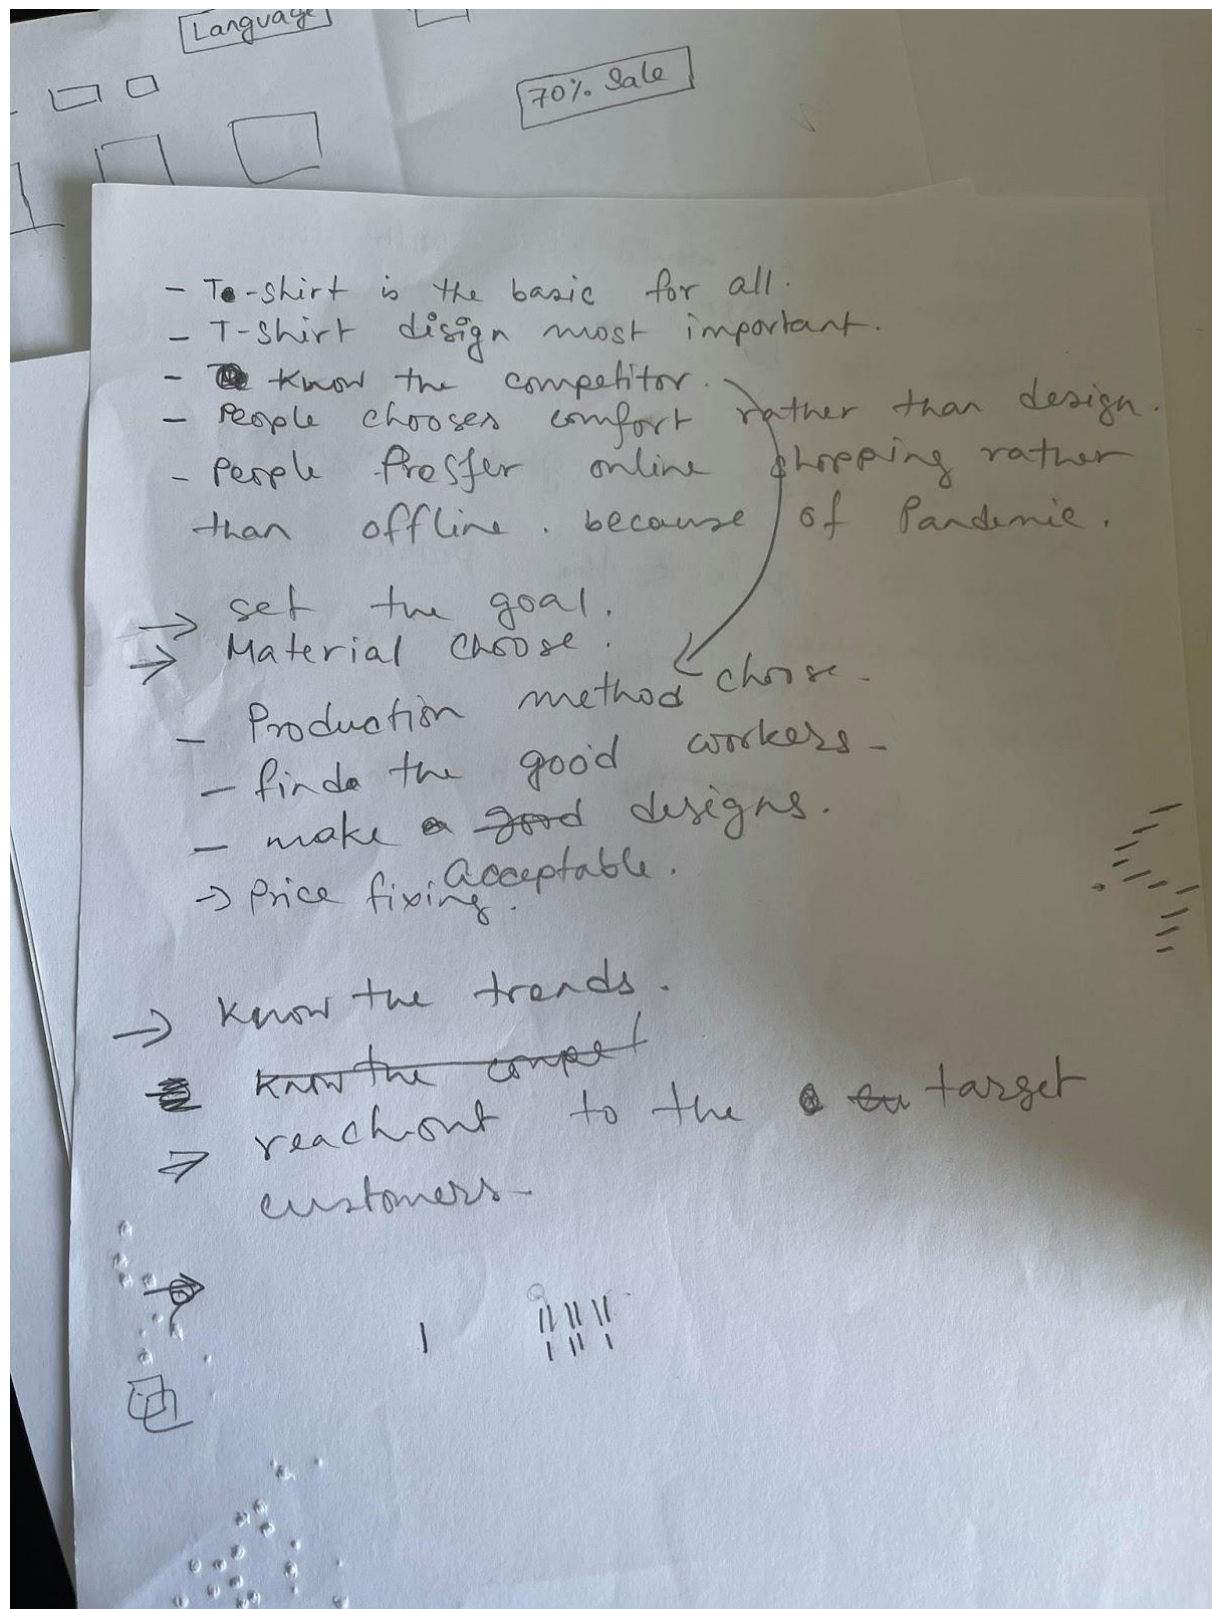 Language
70% Sale
- T-shirt is the basic for all.
- T-shirt disign most important.
- Know the competitor.
- People chooses comfort rather than design.
- People Presfer online shopping rather
than offline. because of Pandemic.
→ set the goal.
→ Material choose.
- Production method choose.
- find the good workers-
- make good designs.
Acceptable.
→ Price fixing.
→ Know the trends.
Know the compet
→ reachout to the target
customers-